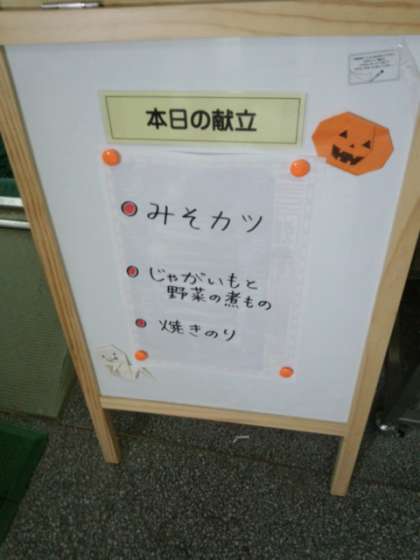 本日の献立
みそカツ
じゃがいもと
野菜の煮もの
焼きのり